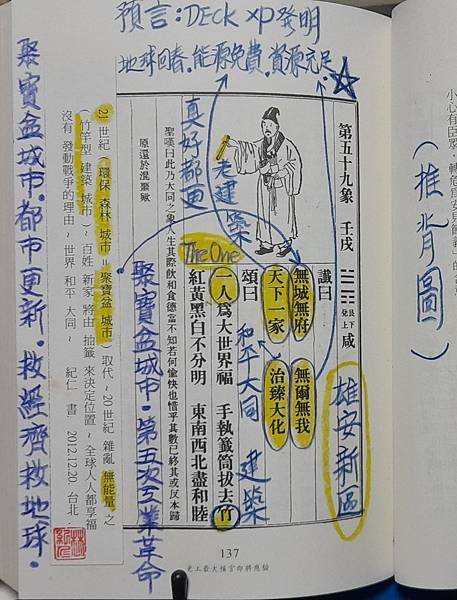 預言:DECK xp發明
地球回春.能源免費.資源充足.
(推背圖)
第五十九象 壬戌
艮下兌上 咸
讖曰
無城無府 無爾無我
天下一家 治臻大化
頌曰
一人為大世界福 手執籤筒拔去竹
紅黃黑白不分明 東南西北盡和睦
雄安新區
和平大同
建築
The One
老建築
真好都更
聚寶盆城市.第五次工業革命
聖嘆曰此乃大同之象人生其際飲和食德當不知若何愉快也惜乎其數已終其或反本歸
原還於混聚歟
21世紀(環保 森林 城市=聚寶盆 城市)取代~20世紀 雜亂 無能量 之
(竹竿型 建築 城市)~百姓 新家 將由 抽籤 來決定位置~全球人人都享福
沒有 發動戰爭的理由~世界 和平 大同~ 紀仁 書 2012.12.20 台北
聚寶盆城市.都市更新.救經濟救地球.
137